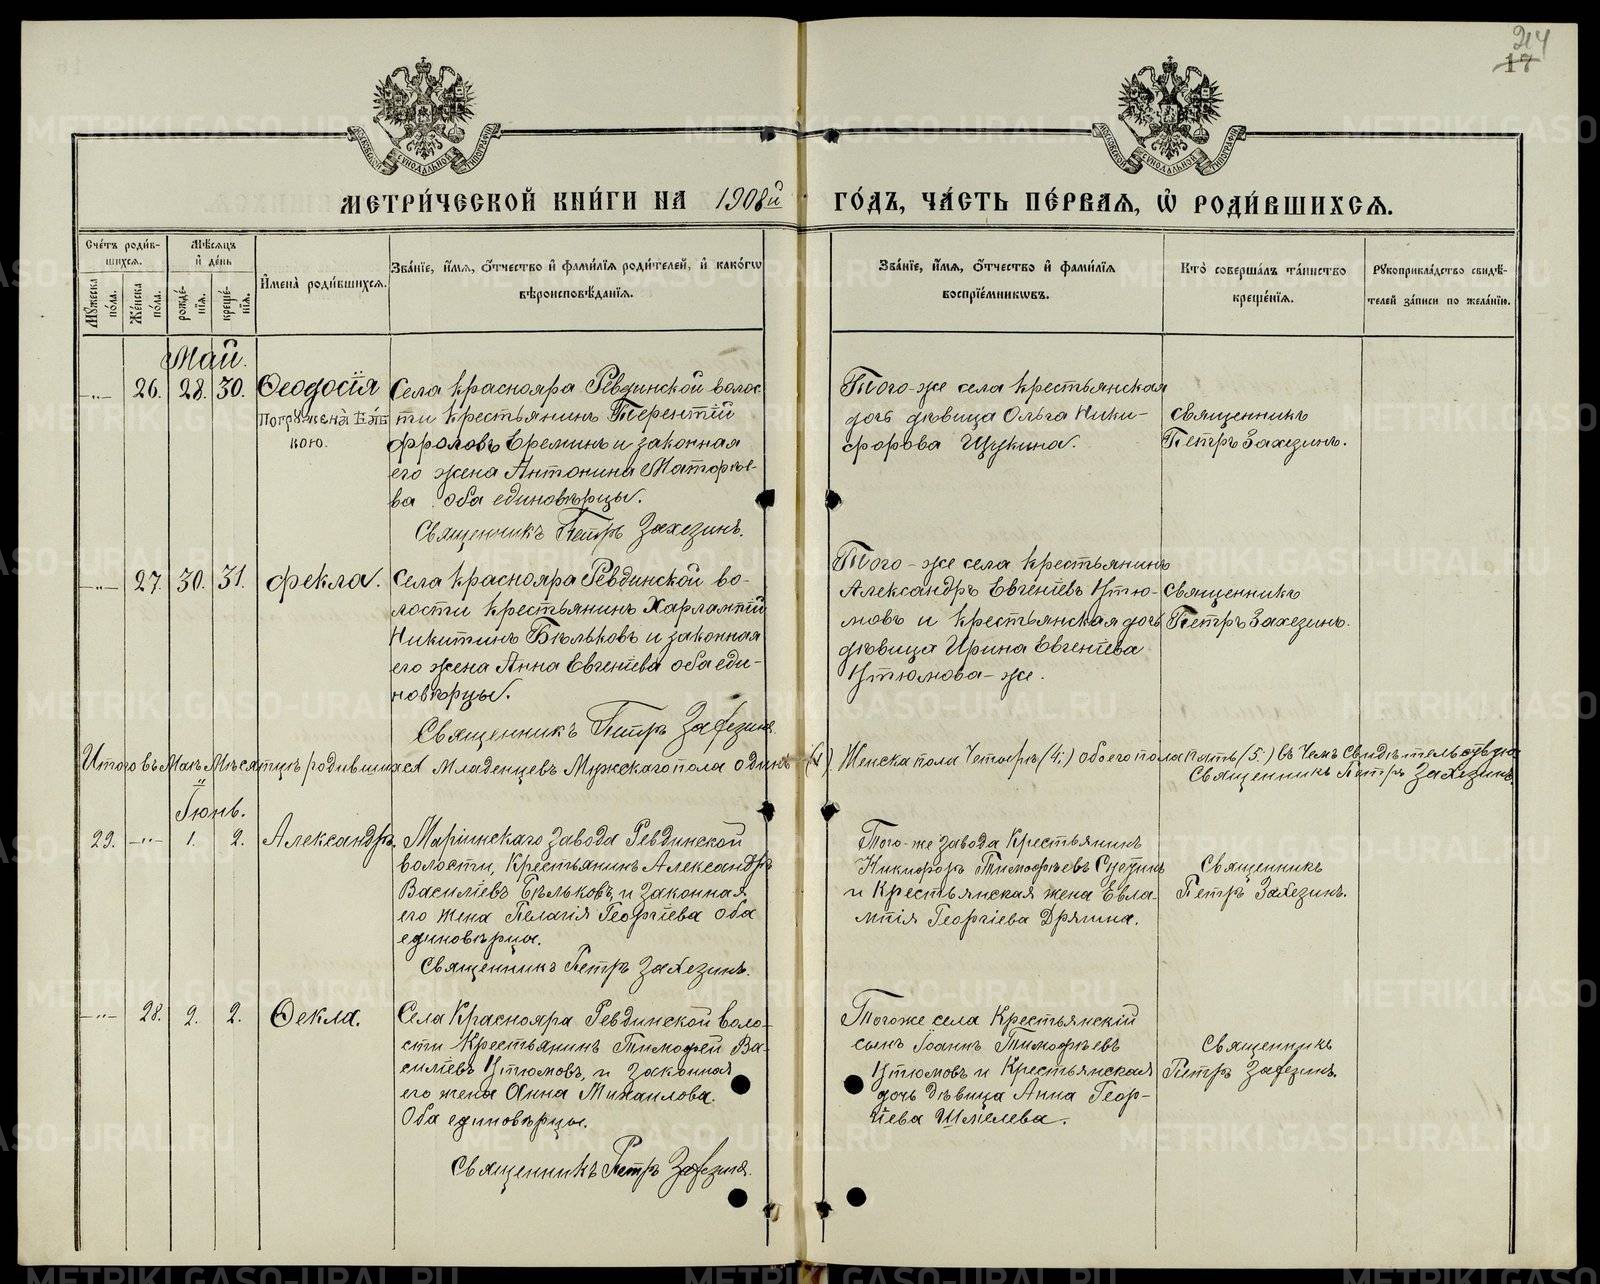 214
17
МЕТРИ́ЧЕСКОЙ КНИ́ГИ НА 1908й ГО́ДЪ, ЧА́СТЬ ПЕ́РВАѦ, Ѡ҆ РОДИ́ВШИХСѦ.
Сче́тъ роди́в-
шихсѧ.
Мѣ́сѧцъ
и҆ де́нь
Мꙋ́жеска
по́ла.
Же́нска
по́ла.
рожде́-
нїѧ.
креще́-
нїѧ.
И҆мена̀ роди́вшихсѧ.
Зва́нїе, и҆́мѧ, о҆́тчество и҆ фами́лїѧ роди́телей, и҆ како́гѡ
вѣроисповѣ́данїѧ.
Зва́нїе, и҆́мѧ, о҆́тчество и҆ фами́лїѧ
воспрїе́мникѡвъ.
Кто̀ соверша́лъ та́инство
креще́нїѧ.
Рꙋкоприкла́дство свидѣ́-
телей за́писи по жела́нїю.
Май.
-"- 26. 28. 30. Ѳеодосія
Погружена̀ ба́б
кою.
Села Краснояра Ревдинской волос
ти крестьянинъ Терентій
Фроловъ Ереминъ и законная
его жена Антонина Матөѣе-
ва оба единовѣрцы.
Священникъ Петръ Захезинъ.
Того-же села крестьянская
дочь дѣвица Ольга Ники-
форова Щукина.
Священникъ
Петръ Захезинъ.
-"- 27. 30. 31. Фекла.
Села Краснояра Ревдинской во-
лости крестьянинъ Харлампій
Никитинъ Бѣльковъ и законная
его жена Анна Евгеніева оба еди-
новѣрцы.
Священникъ Петръ Захезинъ
Того-же села крестьянинъ
Александръ Евгеніевъ Утю-
мовъ и крестьянская дочь
дѣвица Ирина Евгеніева
Утюмова-же.
Священникъ
Петръ Захезинъ.
Итого въ Маѣ Мѣсяцѣ родившихся Младенцевъ Мужскаго пола одинъ (1). Женска пола Четыре (4.) обоего пола пять (5.) въ Чемъ Свидѣтельствую
Священникъ Петръ Захезинъ.
Іюнь.
29. -"- 1. 2. Александръ.
Маріинскаго Завода Ревдинской
волости, Крестьянинъ Александръ
Василіевъ Бѣльковъ, и Законная
его Жена Пелагія Георгіева Оба
единовѣрцы.
Священникъ Петръ Захезинъ.
Того-же Завода Крестьянинъ
Никифоръ Тимофѣевъ
и Крестьянская жена Евла-
мпія Георгіева Дрягина.
Священникъ
Петръ Захезинъ.
-"- 28. 2. 2. Ѳекла.
Села Краснояра Ревдинской воло-
сти Крестьянинъ Тимофей Ва-
силіевъ Утюмовъ, и Законная
его жена Анна Михаилова.
Оба единовѣрцы.
Священникъ Петръ Захезинъ.
Тогоже села Крестьянскій
сынъ Іоаннъ Тимофѣевъ
Утюмовъ и Крестьянская
дочь Дѣвица Анна Геор-
гіева Шмелева.
Священникъ
Петръ Захезинъ.